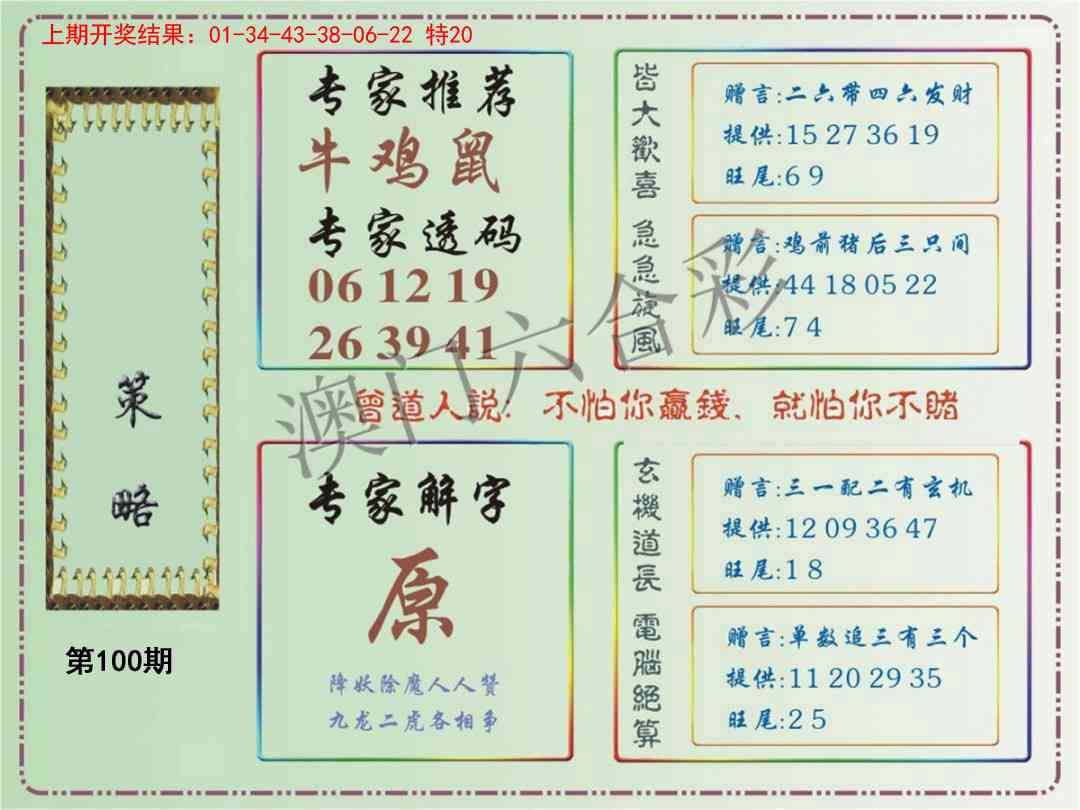 上期开奖结果：01-34-43-38-06-22 特20
策略
第100期
专家推荐
牛鸡鼠
专家透码
06 12 19
26 39 41
皆大歡喜
赠言:二六带四六发财
提供:15 27 36 19
旺尾:6 9
急急旋風
赠言:鸡前猪后三只间
提供:44 18 05 22
旺尾:7 4
澳门六合彩
曾道人説：不怕你贏錢、就怕你不賭
专家解字
原
降妖除魔人人赞
九龙二虎各相争
玄機道長
赠言:三一配二有玄机
提供:12 09 36 47
旺尾:1 8
電腦絕算
赠言:单数追三有三个
提供:11 20 29 35
旺尾:2 5